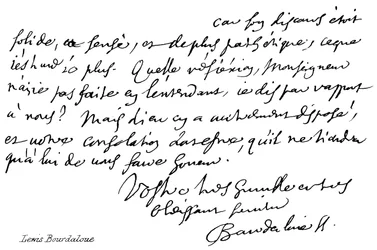 car son discours étoit
solide, et sensé, et de plus pathétique, ce que
plus. Quelle réflexion, Monseigneur
n'ai ie pas faite en l'entendant, ie dis par rapport
à nous? Mais dieu en a autrement disposé,
et notre consolation doit estre, qu'il ne tiendra
qu'à lui de nous
Vostre tres humble et tres
obéissant serviteur
Bourdaloue
Louis Bourdaloue